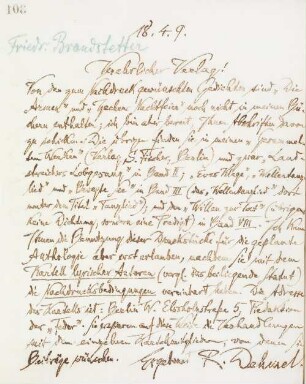 108
18. 4. 9.
Friedr. Brandstetter
Verehrlicher Verlag!
Von den zum Nachdruck gewünschten Gedichten sind „Die
Armen" und „ Nachtfeier" noch nicht in meinen Bü-
chern enthalten; ich bin aber bereit, Ihnen Abschriften davon
zu schicken. Die übrigen finden Sie in meinen „Gesammel-
ten Werken" (Verlag S. Fischer, Berlin) und zwar „Land-
streichers Lobgesang" in Band II; „Wellentanz-
lied" und in Band III (das „Wellentanzlied" dort
unter dem Titel „Tanzlied"), und den „Willen zur Tat" (übrigens
keine Dichtung, sondern eine Predigt) in Band VIII. Ich kann
Ihnen die Benutzung dieser Druckstücke für die geplante
Anthologie aber erst erlauben, nachdem Sie mit dem
Kartell lyrischer Autoren (vergl. das beiliegende Statut)
die Nachdrucksbedingungen vereinbart haben. Die Adresse
des Kartells ist: Berlin W. Elsholzstraße 5, Redaktion
der „Feder". Sie ersparen auf diese Weise die Verhandlungen
mit den einzelnen Kartellmitgliedern, von denen Sie
Beiträge wünschen. Ergebenst R. Dehmel